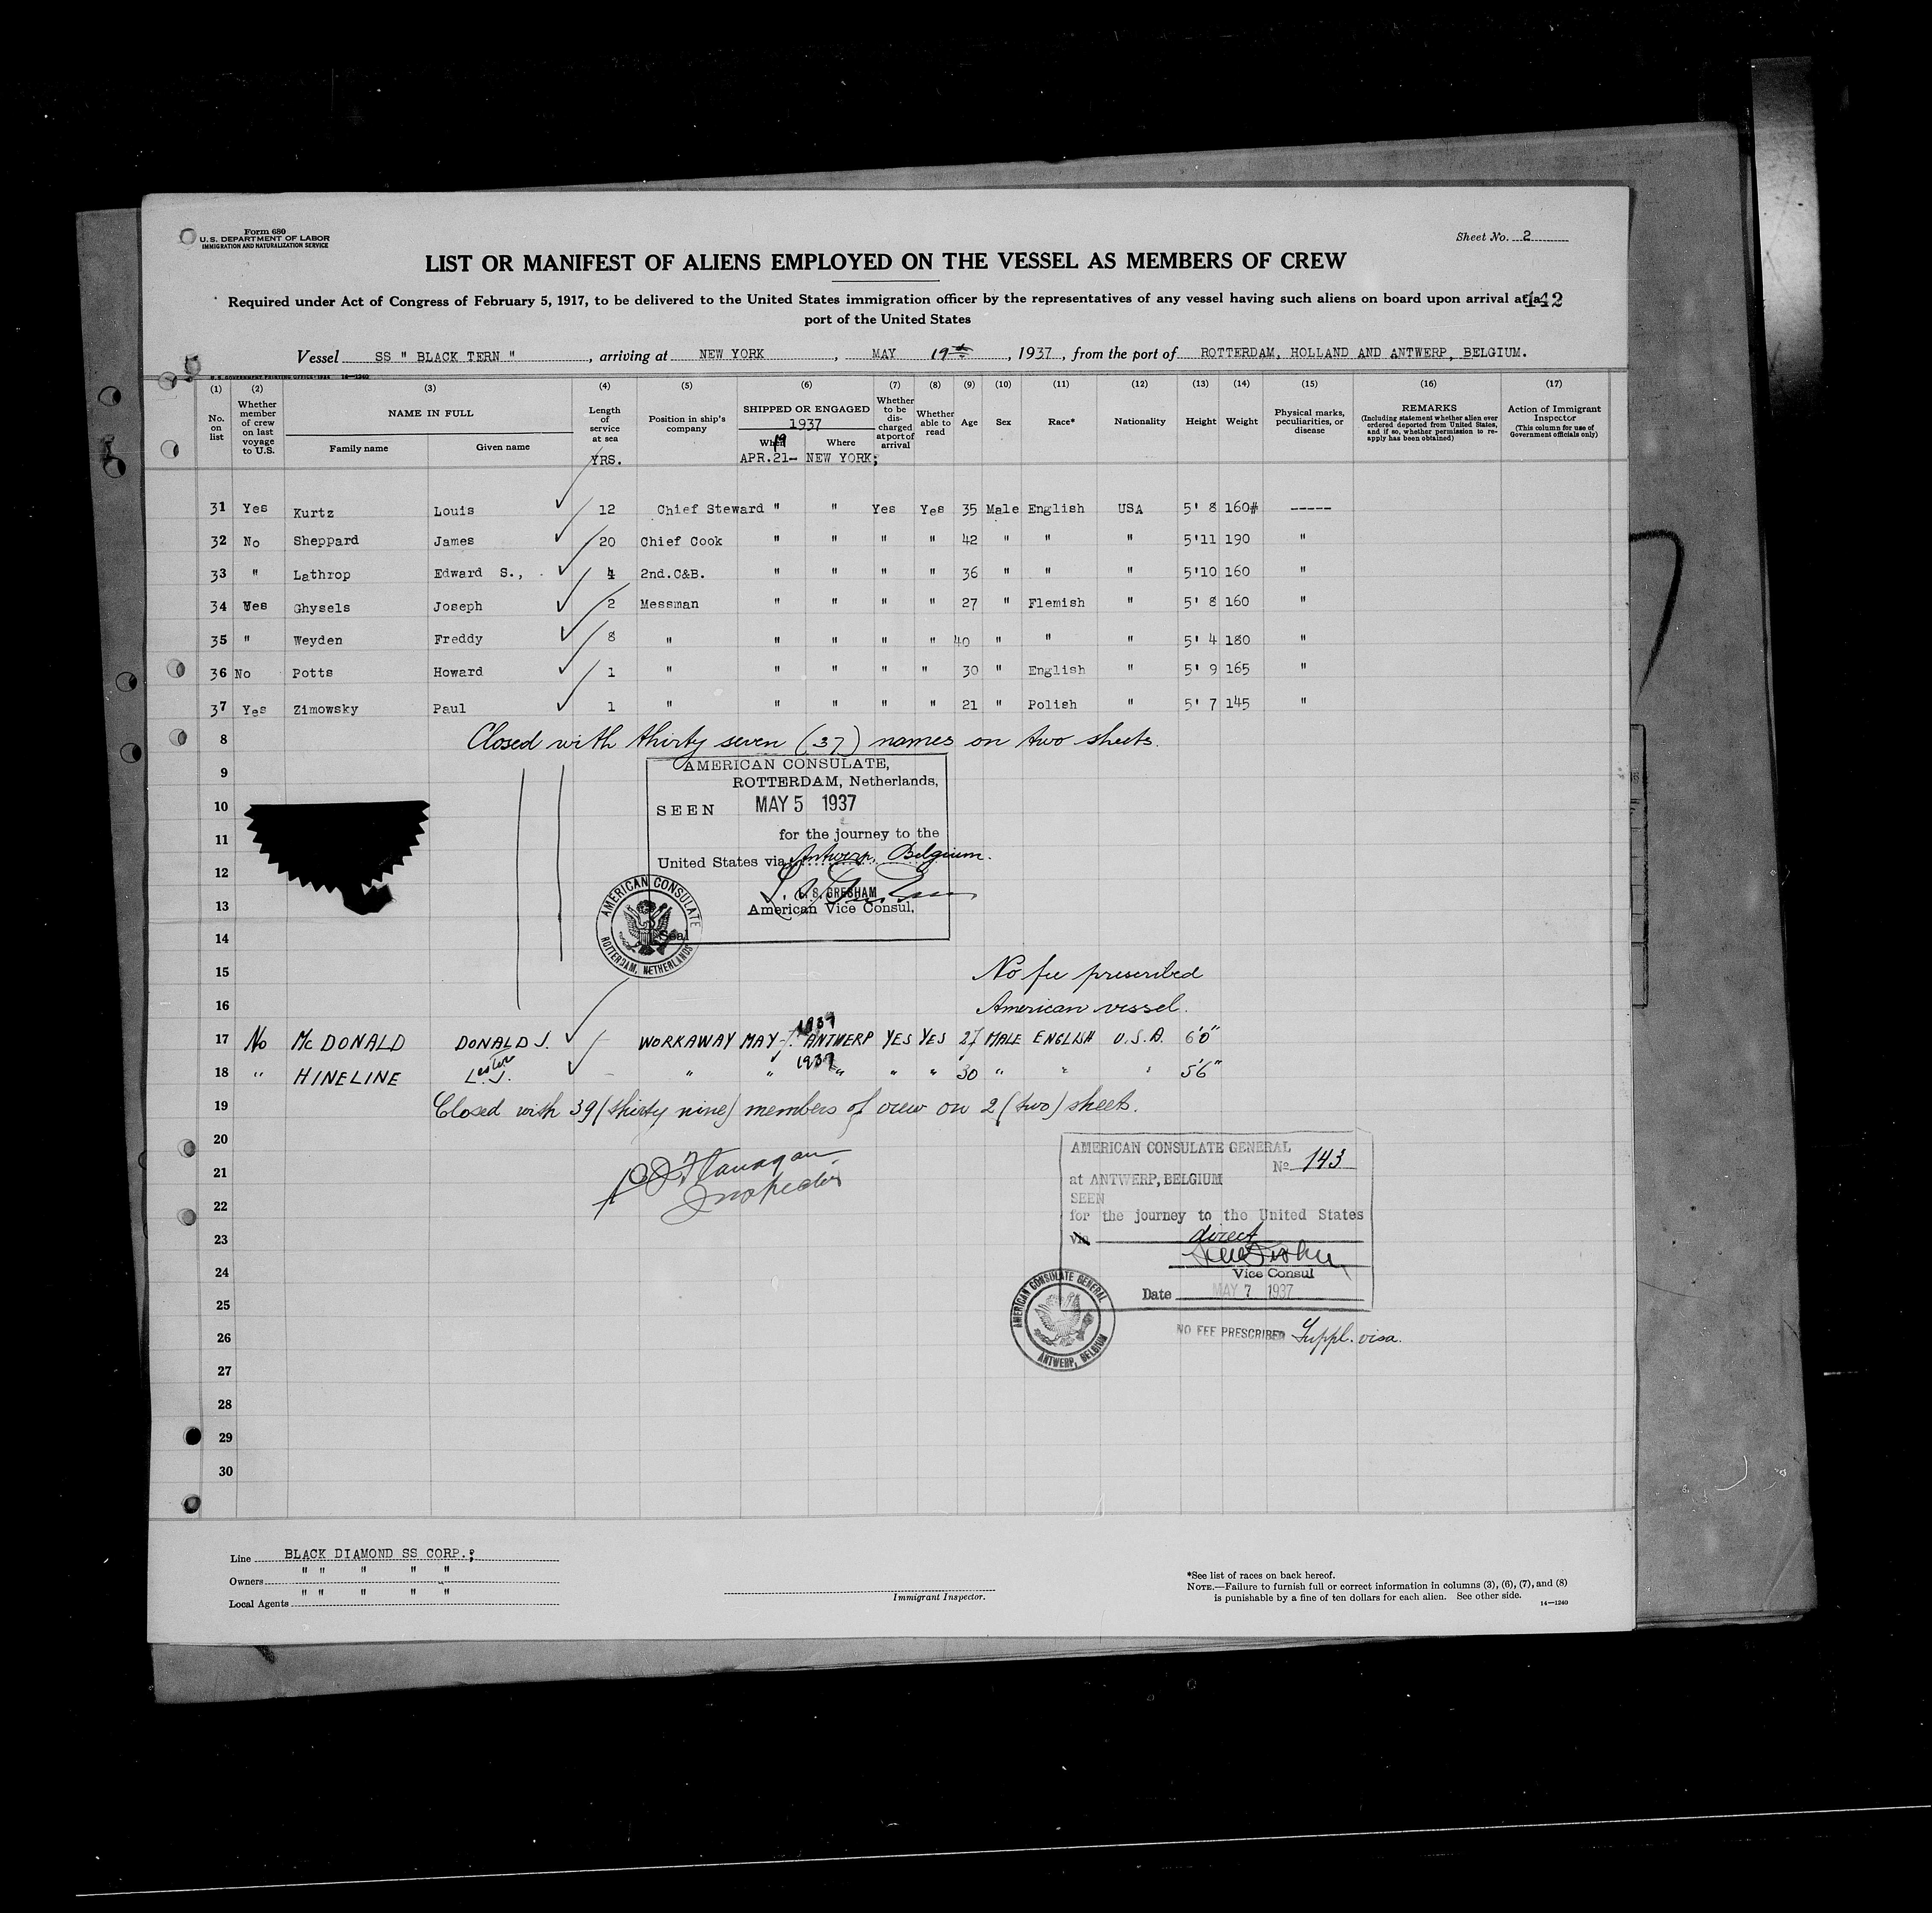 Form 680
U. S. DEPARTMENT OF LABOR
IMMIGRATION AND NATURALIZATION SERVICE
Sheet No. 2
LIST OR MANIFEST OF ALIENS EMPLOYED ON THE VESSEL AS MEMBERS OF CREW
Required under Act of Congress of February 5, 1917, to be delivered to the United States immigration officer by the representatives of any vessel having such aliens on board upon arrival at a
142
port of the United States
Vessel SS " BLACK TERN " , arriving at NEW YORK , MAY 19th , 1937 , from the port of ROTTERDAM, HOLLAND AND ANTWERP, BELGIUM.
(1) (2) (3) (4) (5) (6) (7) (8) (9) (10) (11) (12) (13) (14) (15) (16) (17)
No. on list
Whether member of crew on last voyage to U.S.
NAME IN FULL
Family name Given name
Length of service at sea
YRS.
Position in ship's company
SHIPPED OR ENGAGED
1937
When Where
APR.21- NEW YORK;
Whether to be discharged at port of arrival
Whether able to read
Age
Sex
Race*
Nationality
Height
Weight
Physical marks, peculiarities, or disease
REMARKS
(Including statement whether alien ever ordered deported from United States, and if so, whether permission to reapply has been obtained)
Action of Immigrant Inspector
(This column for use of Government officials only)
31 Yes Kurtz Louis 12 Chief Steward " " Yes Yes 35 Male English USA 5' 8 160# -----
32 No Sheppard James 20 Chief Cook " " " " 42 " " " 5'11 190 "
33 " Lathrop Edward S., 4 2nd.C&B. " " " " 36 " " " 5'10 160 "
34 Yes Ghysels Joseph 2 Messman " " " " 27 " Flemish " 5' 8 160 "
35 " Weyden Freddy 8 " " " " " 40 " " " 5' 4 180 "
36 No Potts Howard 1 " " " " " 30 " English " 5' 9 165 "
37 Yes Zimowsky Paul 1 " " " " " 21 " Polish " 5' 7 145 "
8 Closed with thirty seven (37) names on two sheets.
9
10
11
12
13
14
AMERICAN CONSULATE,
ROTTERDAM, Netherlands,
SEEN MAY 5 1937
for the journey to the
United States via Antwerp, Belgium.
L. S. GRESHAM
American Vice Consul,
Seal
AMERICAN CONSULATE
ROTTERDAM, NETHERLANDS
15 No fee prescribed
16 American vessel.
17 No McDONALD DONALD J. WORKAWAY MAY 1937 ANTWERP YES YES 27 MALE ENGLISH U.S.A. 6'0"
18 " HINELINE Lester J. - " " 1937 " " " 30 " " " 5'6"
19 Closed with 39 (thirty nine) members of crew on 2 (two) sheets.
20
21 Flanagan
22 Inspector
23
24
25
26
27
28
29
30
AMERICAN CONSULATE GENERAL
No 143
at ANTWERP, BELGIUM
SEEN
for the journey to the United States
via direct
Vice Consul
Date MAY 7 1937
AMERICAN CONSULATE GENERAL
ANTWERP, BELGIUM
NO FEE PRESCRIBED Suppl. visa.
Line BLACK DIAMOND SS CORP.;
Owners " " " " "
Local Agents " " " " "
Immigrant Inspector.
*See list of races on back hereof.
NOTE.—Failure to furnish full or correct information in columns (3), (6), (7), and (8)
is punishable by a fine of ten dollars for each alien. See other side.
14—1240